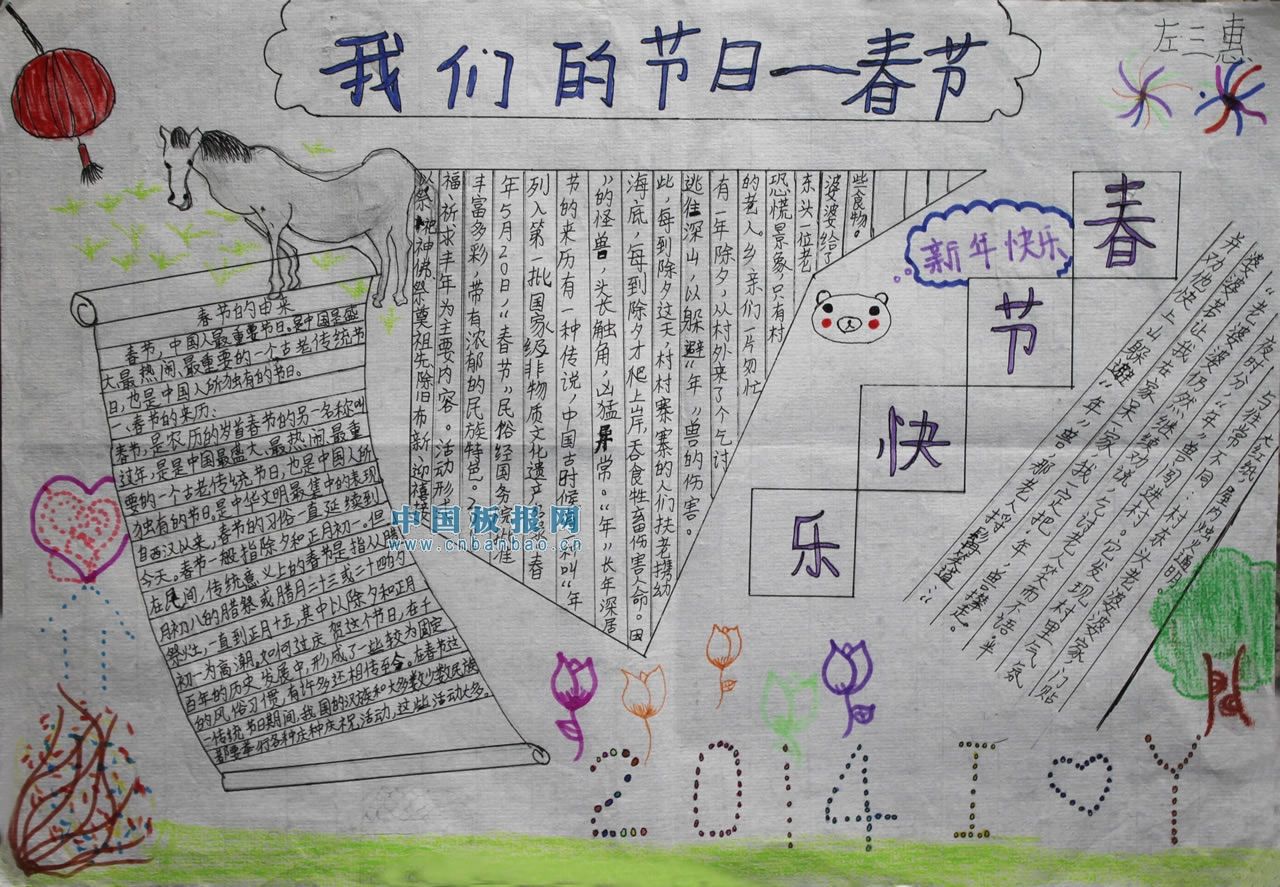 我们的节日—春节
左三惠
春节的由来
春节,中国人最重要节日。是中国是盛
大最热闹、最重要的一个古老传统节
日,也是中国人所独有的节日。
一、春节的来历:
春节,是农历的岁首春节的另一名称叫
过年,是是中国最盛大、最热闹、最重
要的一个古老传统节日,也是中国人所
独有的节日。是中华文明最集中的表现。
自西汉以来,春节的习俗一直延续到
今天。春节一般指除夕和正月初一。但
在民间,传统意义上的春节是指从腊
月初八的腊祭或腊月二十三或二十四的
祭灶,一直到正月十五,其中以除夕和正月
初一为高潮。如何过庆贺这个节日,在千
百年的历史发展中,形成了一些较为固定
的风俗习惯,有许多还相传至今。在春节这
一传统节日期间,我国的汉族和大多数少数民族
都要举行各种庆祝活动,这些活动大多
以祭祀神佛祭奠祖先除旧布新迎禧接
福、祈求丰年为主要内容。活动形
丰富多彩,带有浓郁的民族特色。
年5月20日,“春节”民俗经国务院批准
列入第一批国家级非物质文化遗产 春
节的来历有一种传说,中国古时候有一种叫“年
”的怪兽,头长触角,凶猛异常。“年”长年深居
海底,每到除夕才爬上岸,吞食牲畜伤害人命。因
此,每到除夕这天,村村寨寨的人们扶老携幼
逃往深山,以躲避“年”兽的伤害。
有一年除夕,从村外来了个乞讨
的老人。乡亲们一片匆忙
恐慌景象,只有村
东头一位老
婆婆给了
些食物。
新年快乐
春
节
快
乐
婆婆若让我在家呆一家,我一定把“年”兽撵走。
并劝他快上山躲避“年”兽,那老人捋髯笑道:“
“老婆婆仍然继续劝说,乞讨老人笑而不语。半
夜时分,“年”兽闯进村。它发现村里气氛
与往常不同:村东头老婆婆家,门贴
大红纸,屋内烛火通明。
中国板报网
www.cnbanbao.cn
2014 I Y